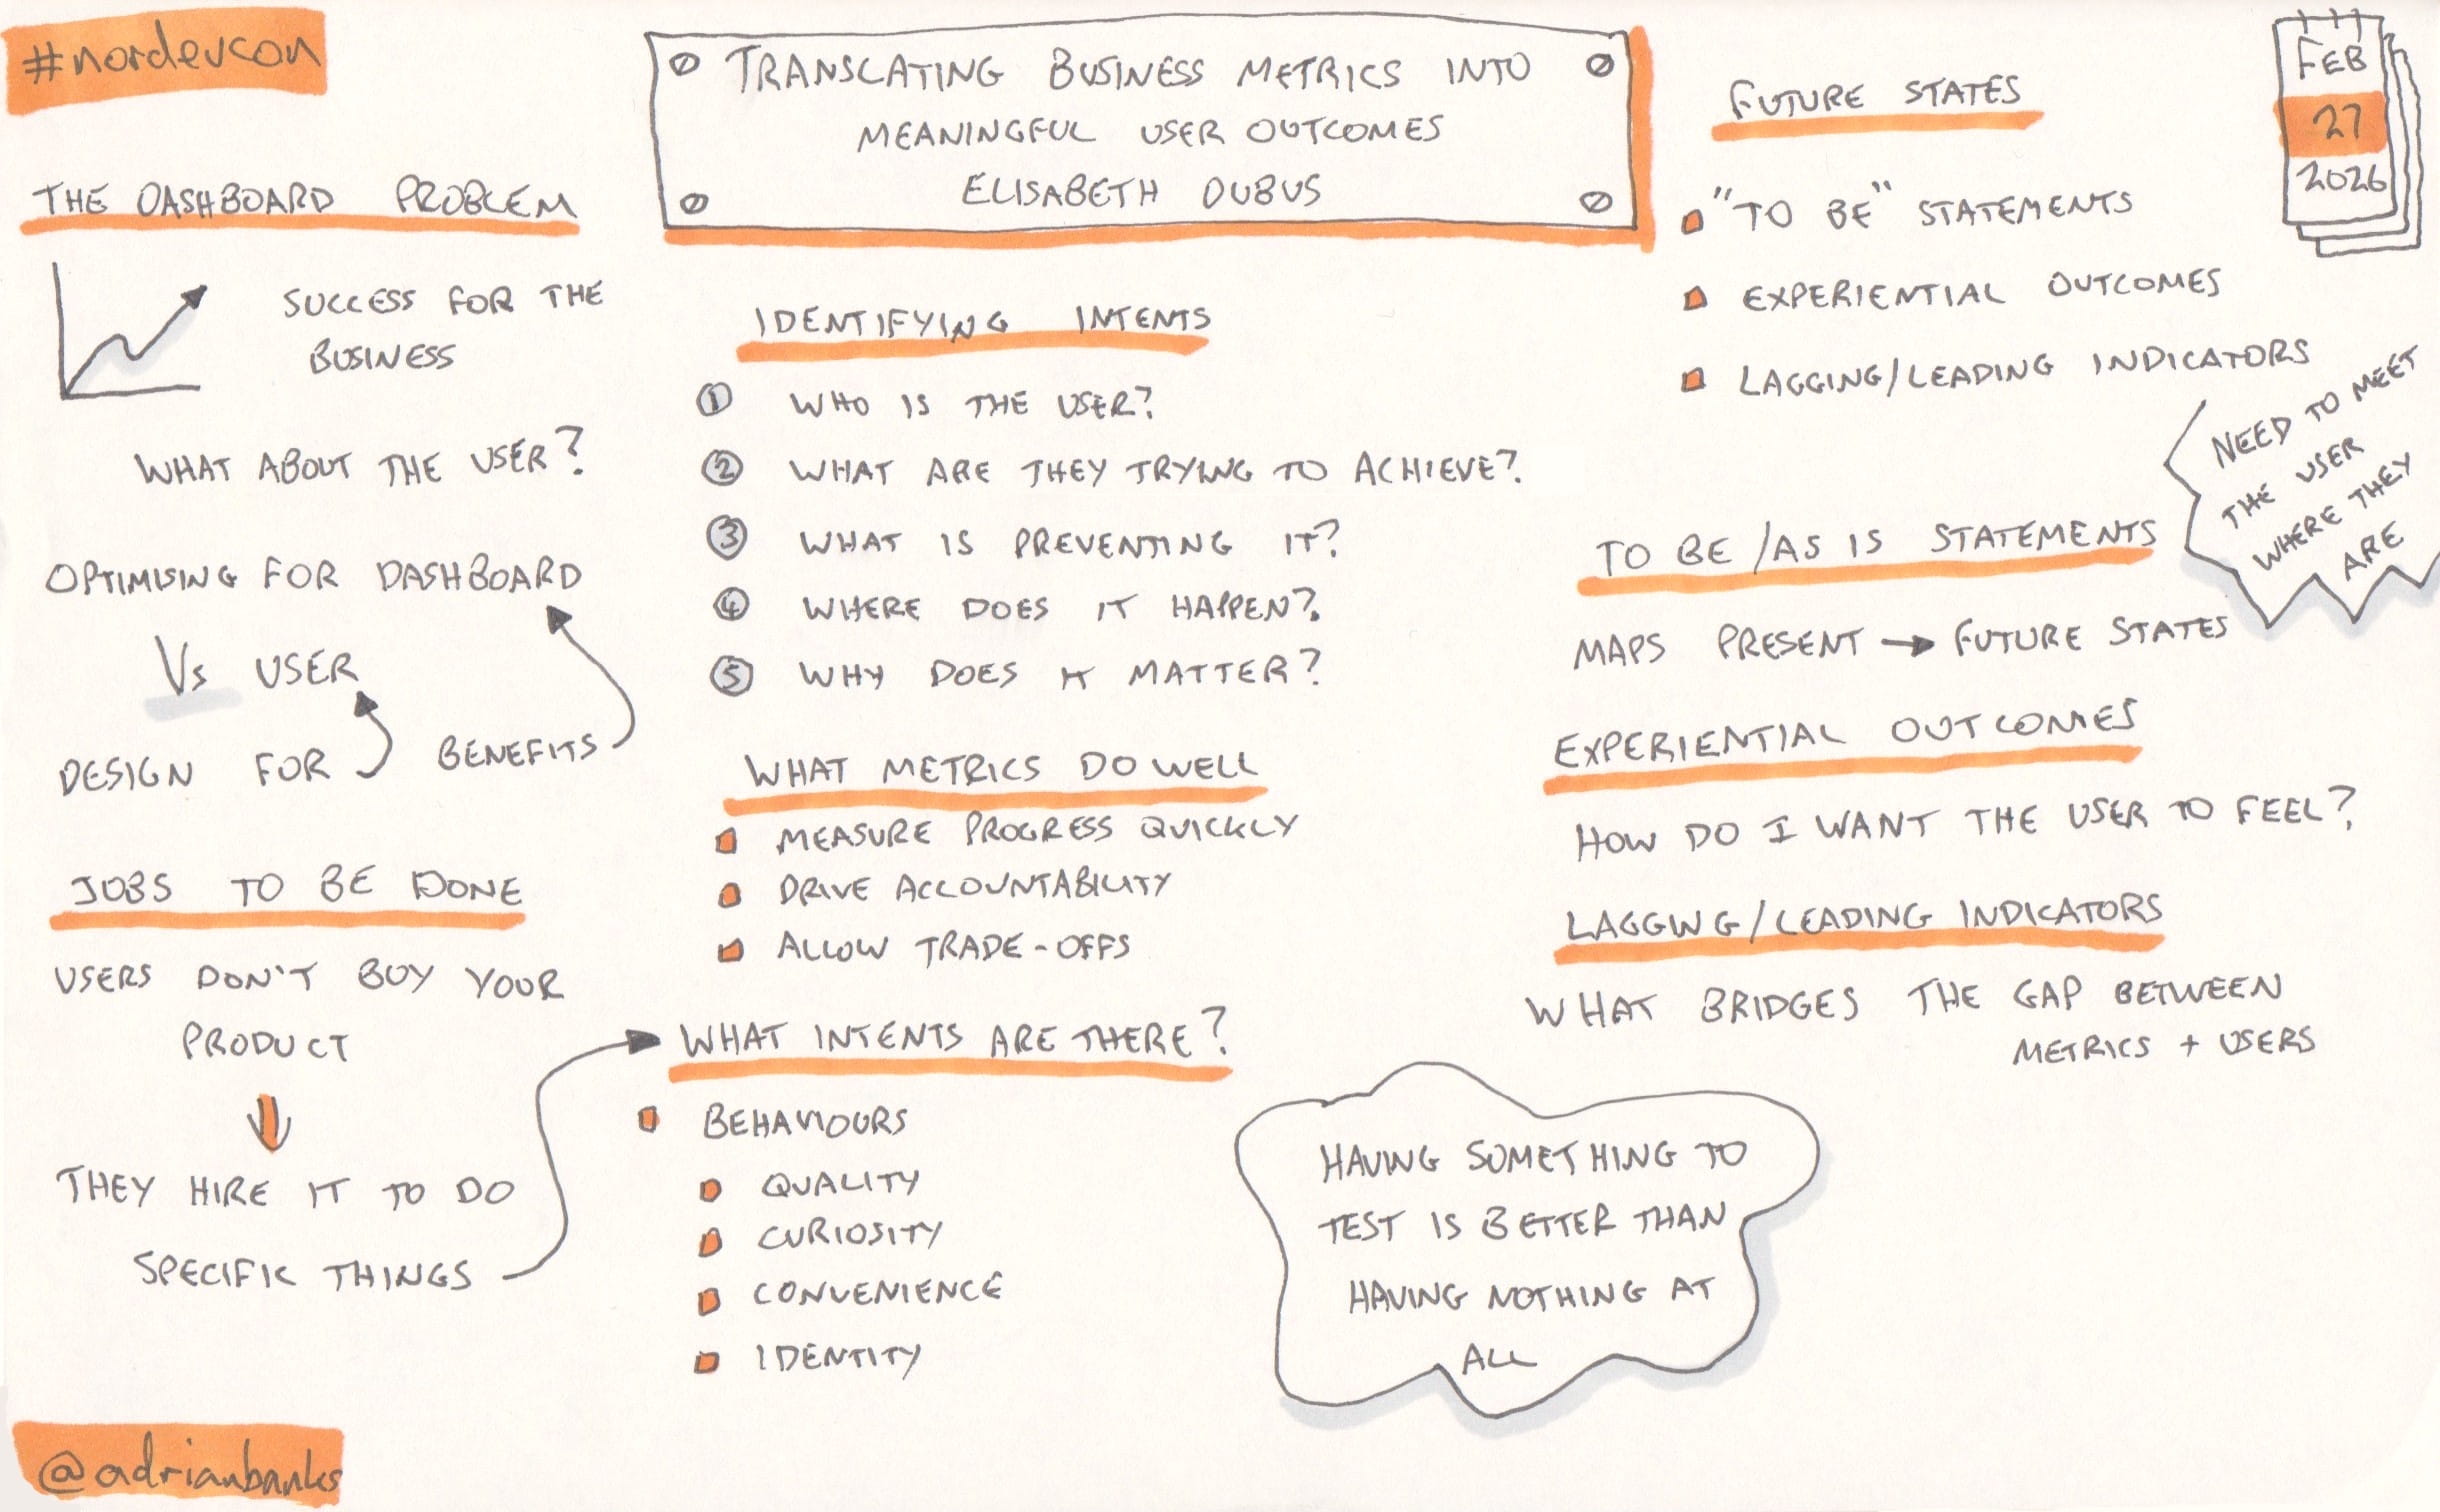 #nordevcon
TRANSLATING BUSINESS METRICS INTO
MEANINGFUL USER OUTCOMES
ELISABETH DUBUS
FEB
27
2026
THE DASHBOARD PROBLEM
SUCCESS FOR THE
BUSINESS
WHAT ABOUT THE USER?
OPTIMISING FOR DASHBOARD
Vs USER
DESIGN FOR
BENEFITS
JOBS TO BE DONE
USERS DON'T BUY YOUR
PRODUCT
THEY HIRE IT TO DO
SPECIFIC THINGS
IDENTIFYING INTENTS
1 WHO IS THE USER?
2 WHAT ARE THEY TRYING TO ACHIEVE?
3 WHAT IS PREVENTING IT?
4 WHERE DOES IT HAPPEN?
5 WHY DOES IT MATTER?
WHAT METRICS DO WELL
MEASURE PROGRESS QUICKLY
DRIVE ACCOUNTABILITY
ALLOW TRADE-OFFS
WHAT INTENTS ARE THERE?
BEHAVIOURS
QUALITY
CURIOSITY
CONVENIENCE
IDENTITY
FUTURE STATES
"TO BE" STATEMENTS
EXPERIENTIAL OUTCOMES
LAGGING/LEADING INDICATORS
NEED TO MEET
THE USER
WHERE THEY
ARE
TO BE/AS IS STATEMENTS
MAPS PRESENT → FUTURE STATES
EXPERIENTIAL OUTCOMES
HOW DO I WANT THE USER TO FEEL?
LAGGING/LEADING INDICATORS
WHAT BRIDGES THE GAP BETWEEN
METRICS + USERS
HAVING SOMETHING TO
TEST IS BETTER THAN
HAVING NOTHING AT
ALL
@adrianbanks